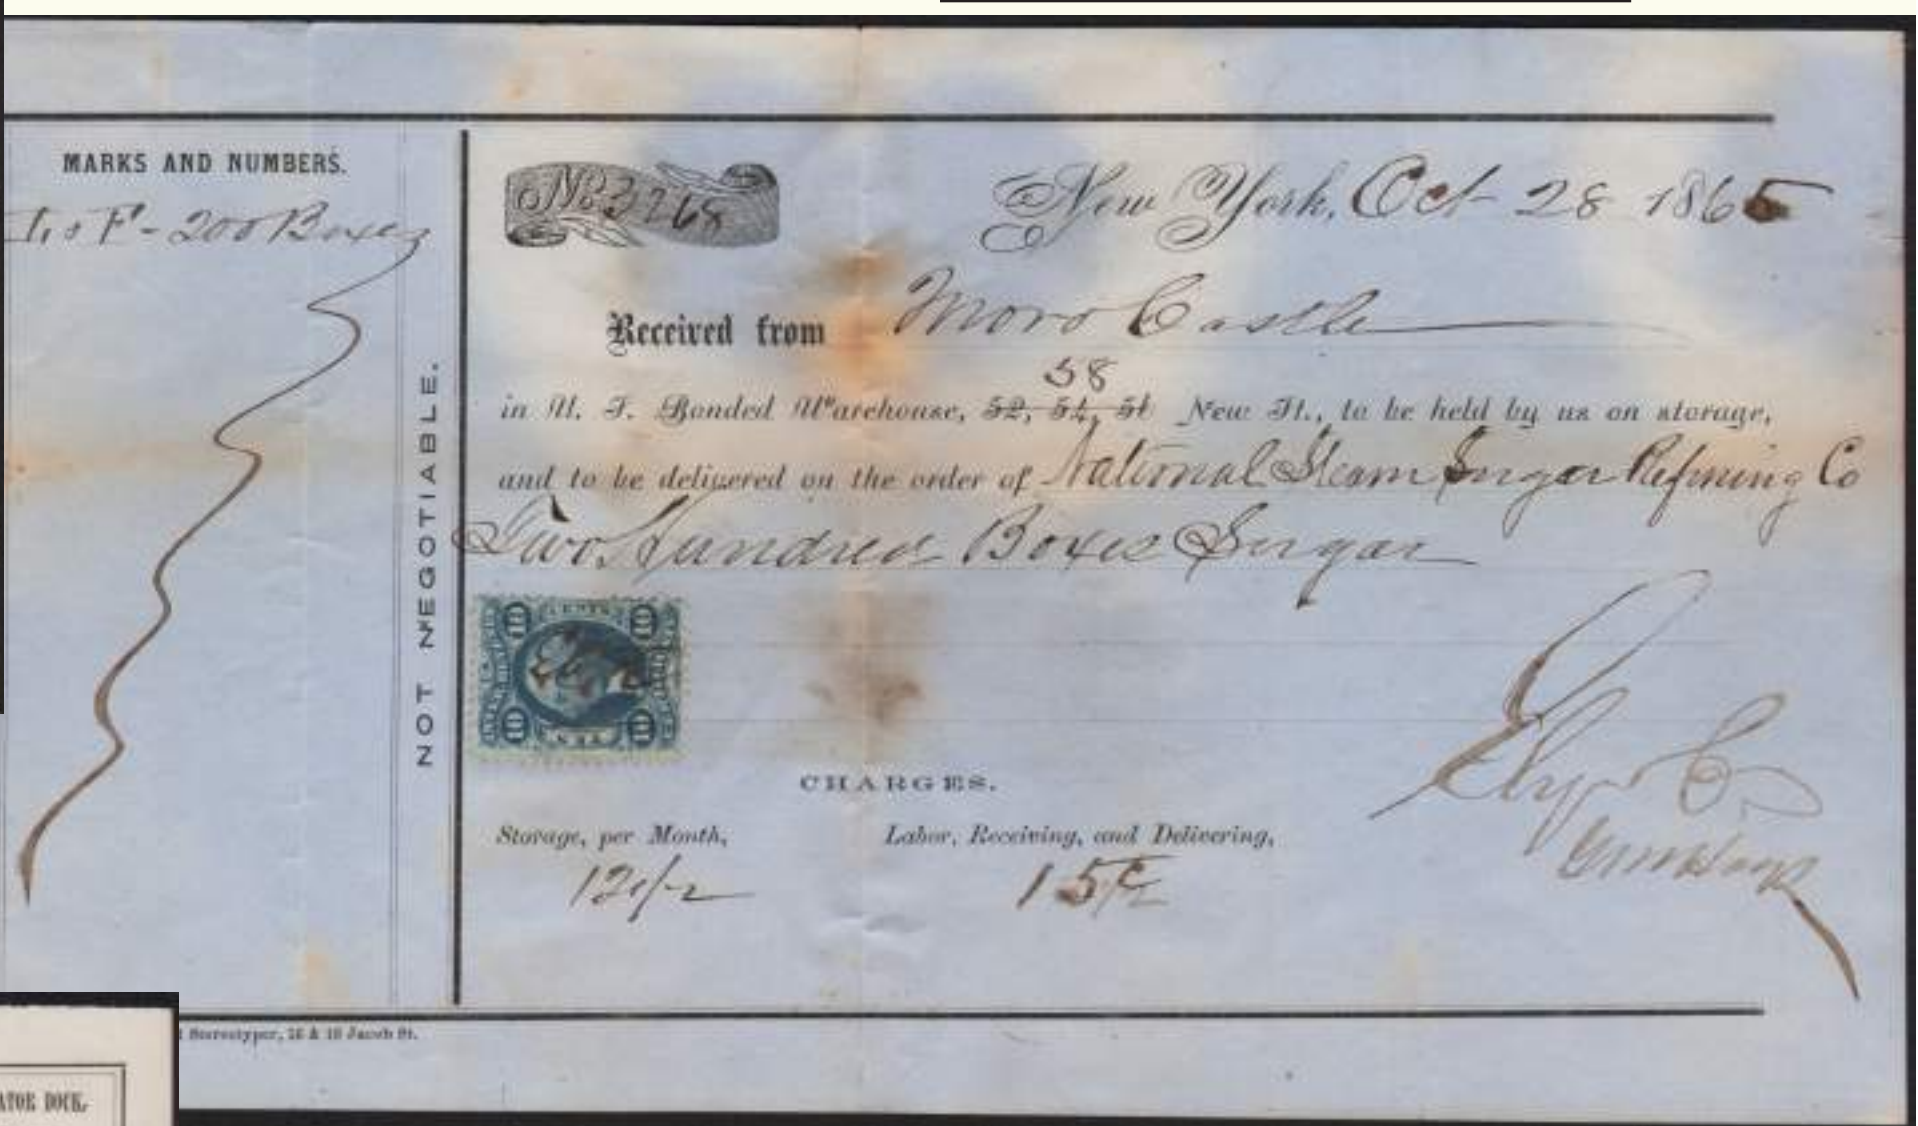 MARKS AND NUMBERS.
200 Boxes
NOT NEGOTIABLE.
No 3768
New York, Oct 28 1865
Received from Moro Castle
58
in U. S. Bonded Warehouse, 52, 54, 56 New St., to be held by us on storage,
and to be delivered on the order of National Steam Sugar Refining Co
Two Hundred Boxes Sugar
10 CENTS 10
10 10
CHARGES.
Storage, per Month, Labor, Receiving, and Delivering,
12 1/2 15
Stereotyper, 16 & 18 Jacob St.
ATOR DOCK.